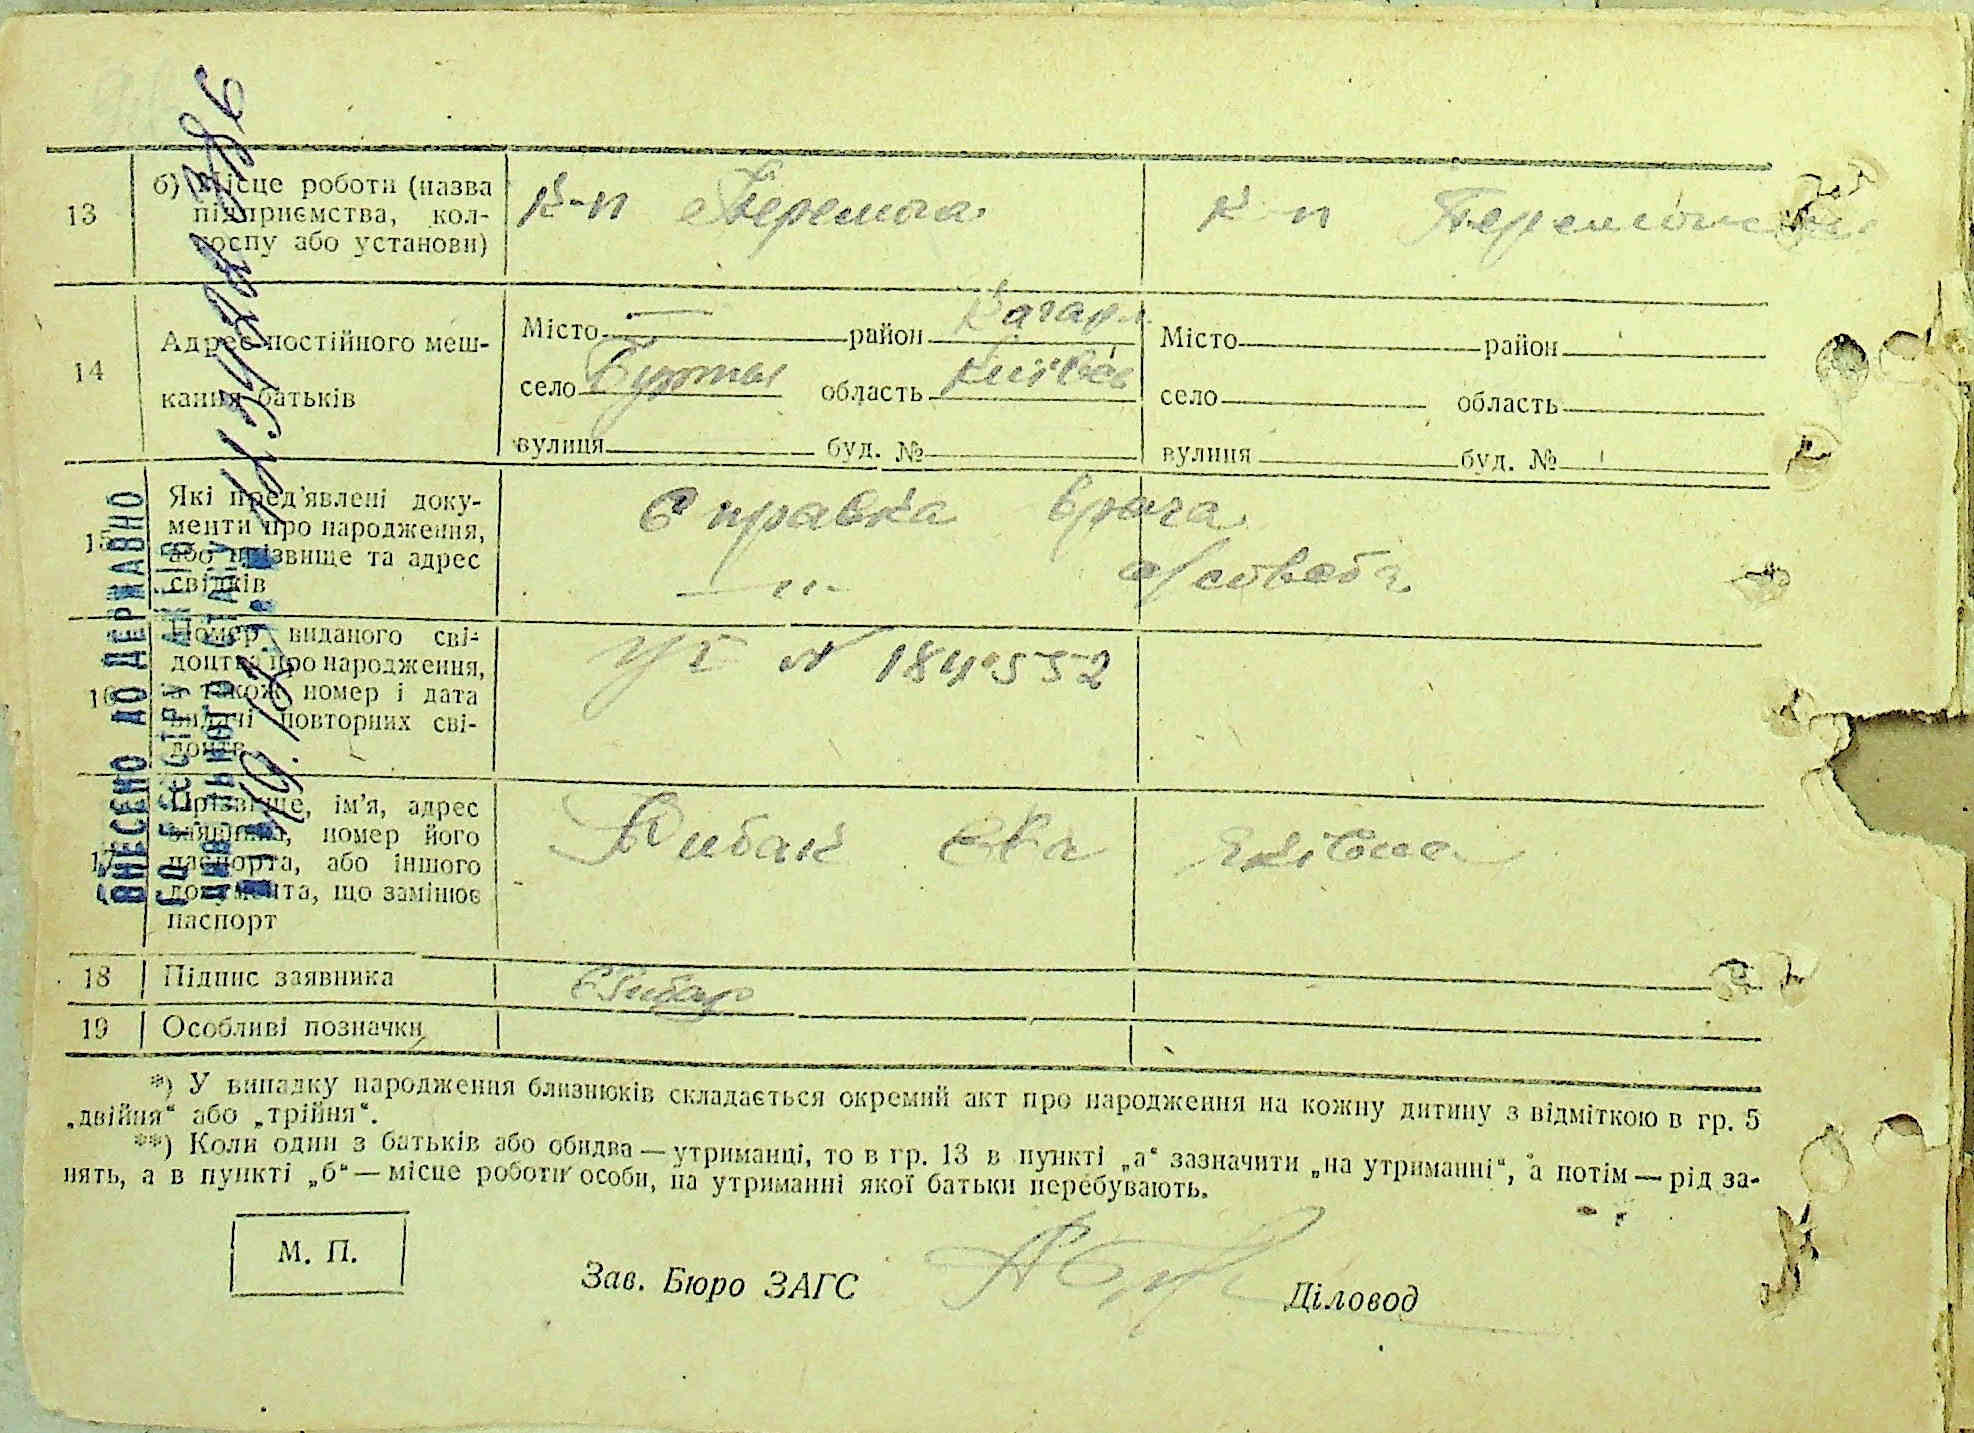 13
б) Місце роботи (назва
підприємства, кол-
госпу або установи)
к-п Перемога
к-п
14
Адрес постійного меш-
кання батьків
Місто район Кагарл.
село Бурты область Київсь
вулиця буд. №
Місто район
село область
вулиця буд. №
15
Які пред'явлені доку-
менти про народження,
або прізвище та адрес
свідків
Справка врача
— „ — с/совета
16
Номер виданого сві-
доцтва про народження,
а також номер і дата
видачі повторних сві-
доцтв
УГ № 184552
17
Прізвище, ім'я, адрес
заявника, номер його
паспорта, або іншого
документа, що замінює
паспорт
Рибак Єва
18
Підпис заявника
19
Особливі позначки
ВНЕСЕНО ДО ДЕРЖАВНО
ГО РЕЄСТРУ АКТІВ
ЦИВІЛЬНОГО СТАНУ
*) У випадку народження близнюків складається окремий акт про народження на кожну дитину з відміткою в гр. 5
„двійня“ або „трійня“.
**) Коли один з батьків або обидва — утриманці, то в гр. 13 в пункті „а“ зазначити „на утриманні“, а потім — рід за-
нять, а в пункті „б“ — місце роботи особи, на утриманні якої батьки перебувають.
М. П.
Зав. Бюро ЗАГС
Діловод